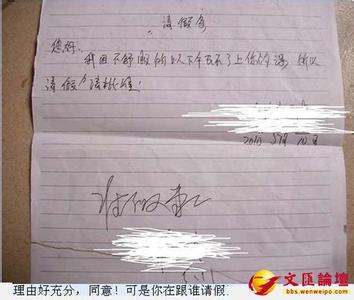 请假条
您好:
我因不舒服所以下午去不了上你的课,所以
请假!请批准!
理由好充分,同意!可是你在跟谁请假
文匯論壇
bbs.wenweipo.com